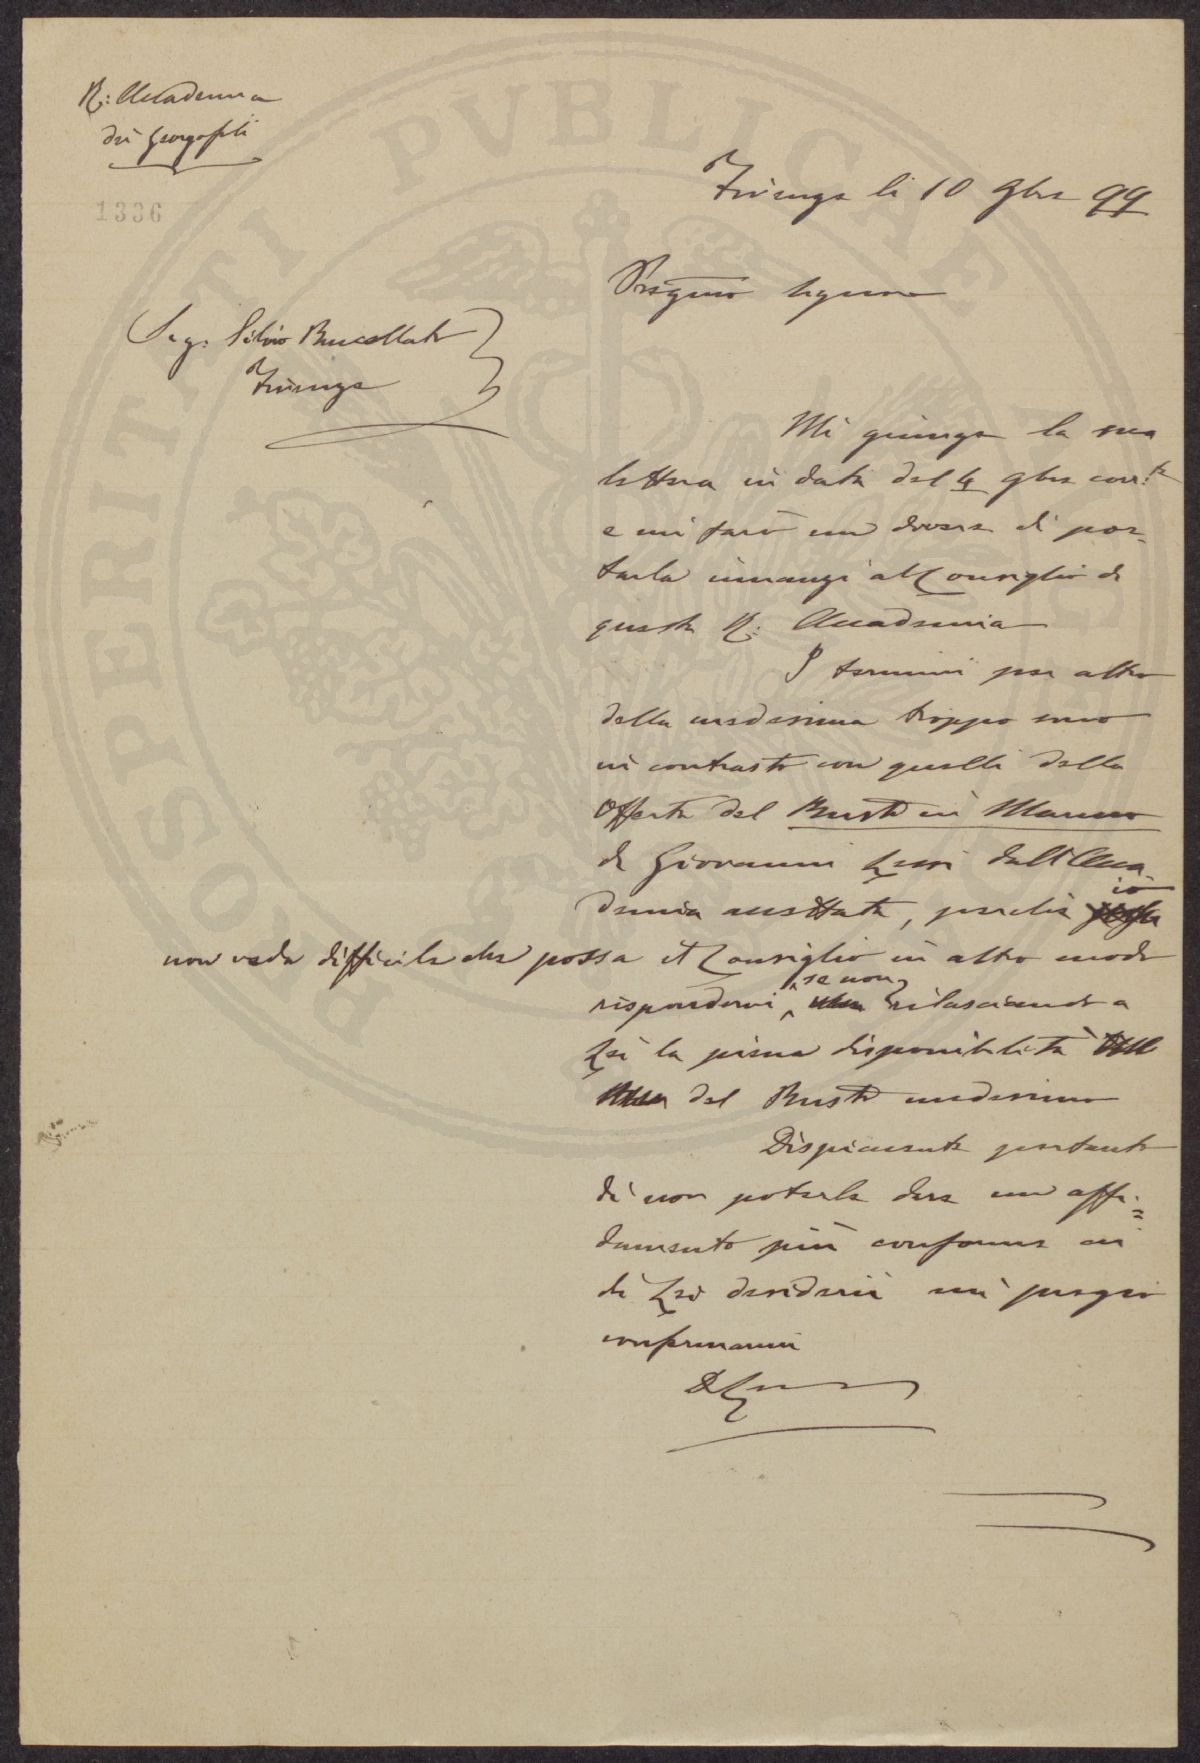 R: Accademia
dei Georgofili
1336
Firenze li 10 9bre 99
Pregmo Signore
Sig: Silvio Bucellato
Firenze
Mi giunge la sua
lettera in data del 4 9bre corr.te
e mi farò un dovere di por-
tarla innanzi al Consiglio di
questa R: Accademia
I termini per altro
della medesima troppo sono
in contrasto con quelli della
Offerta del Busto in Marmo
di Giovanni dall'Acca
demia accettata, perchè io
non veda difficile che possa il Consiglio in altro modo
rispondervi, se non rilasciando a
Lei la piena disponibilità
del Busto medesimo
Dispiacente pertanto
di non poterle dare un affi=
damento più conforme ai
di Lei desiderii mi pregio
confermarmi
PROSPERITATI PVBLICAE